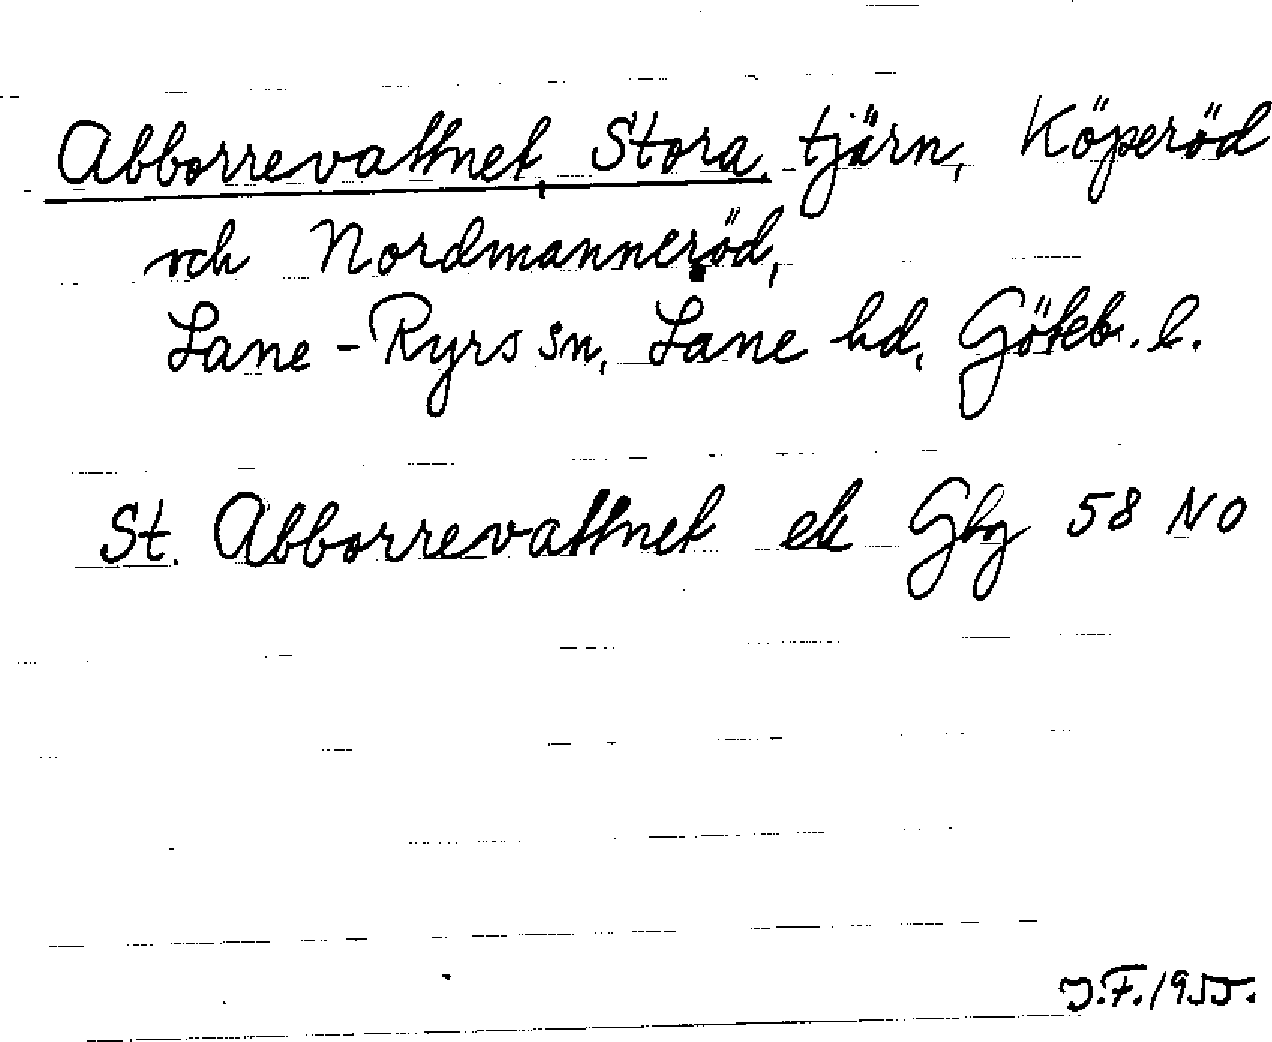 Abborrevattnet, Stora, tjärn, Köperöd
och Nordmanneröd,
Lane-Ryrs sn, Lane hd, Göteb. l.
St. Abborrevattnet ek Gbg 58 NO
J.F. 1955.